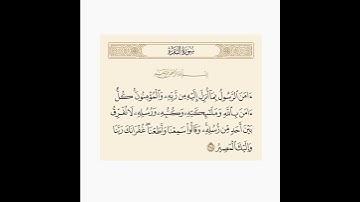 سُورَةُ البَقَرَةِ
بِسْمِ اللَّهِ الرَّحْمَٰنِ الرَّحِيمِ
ءَامَنَ ٱلرَّسُولُ بِمَآ أُنزِلَ إِلَيْهِ مِن رَّبِّهِۦ وَٱلْمُؤْمِنُونَۚ كُلٌّ
ءَامَنَ بِٱللَّهِ وَمَلَٰٓئِكَتِهِۦ وَكُتُبِهِۦ وَرُسُلِهِۦ لَا نُفَرِّقُ
بَيْنَ أَحَدٍ مِّن رُّسُلِهِۦۚ وَقَالُوا۟ سَمِعْنَا وَأَطَعْنَاۖ غُفْرَانَكَ رَبَّنَا
وَإِلَيْكَ ٱلْمَصِيرُ